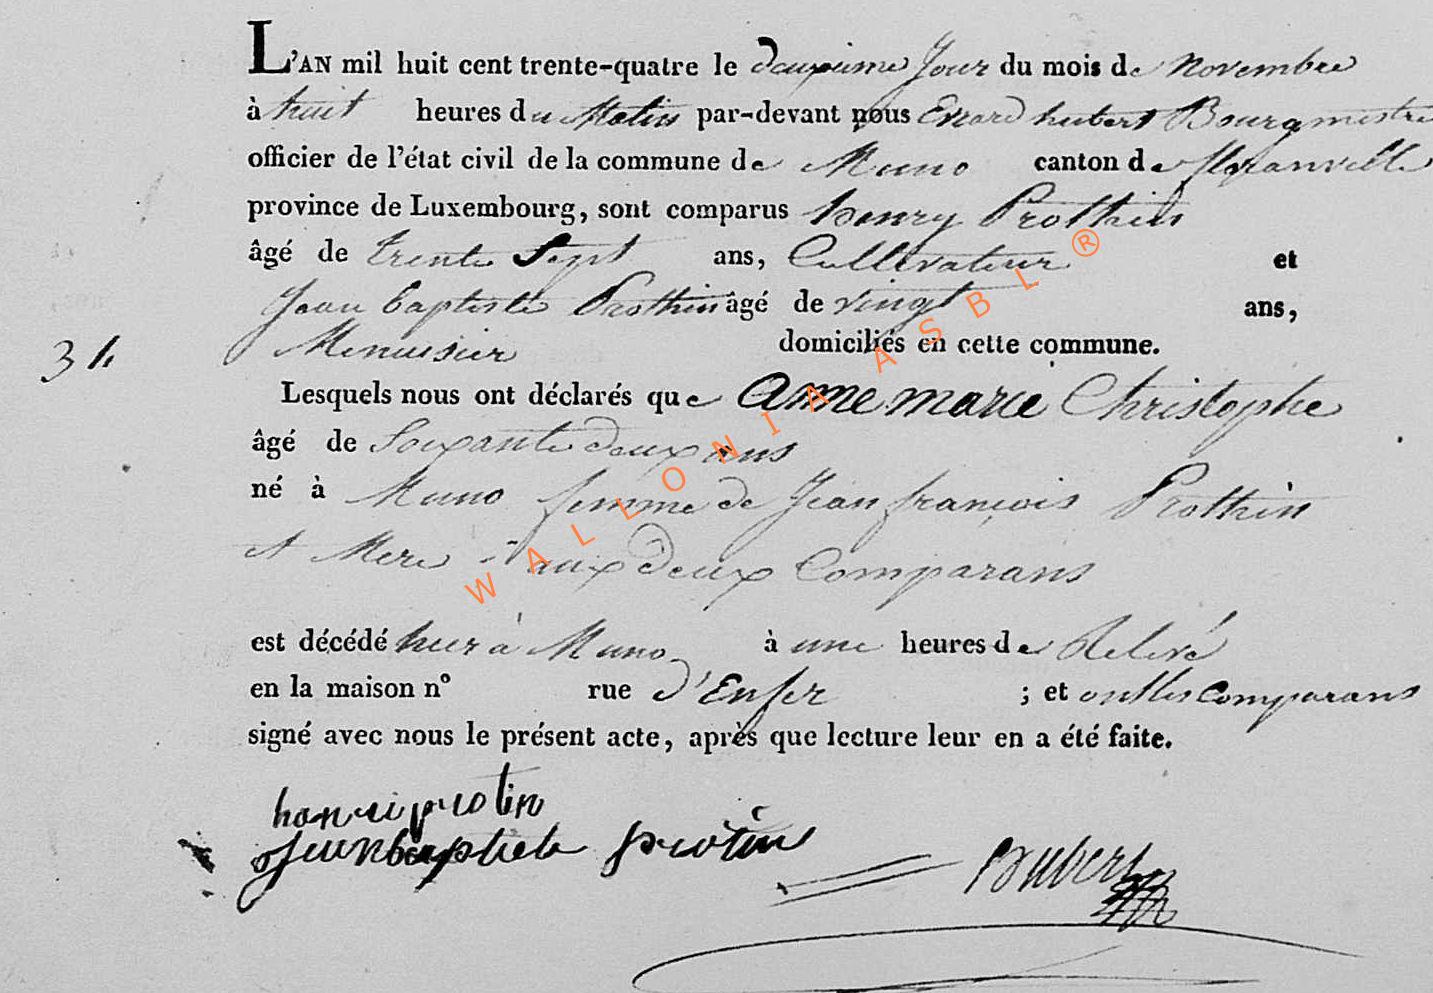 L'AN mil huit cent trente-quatre le deuxieme Jour du mois de Novembre
à huit heures du Matin par-devant nous Evrard hubert Bourgmestre
officier de l'état civil de la commune de Muno canton de floranville
province de Luxembourg, sont comparus henry Prothin
âgé de trente Sept ans, Cultivateur et
Jean baptiste Prothin âgé de vingt ans,
34 Menuisier domiciliés en cette commune.
Lesquels nous ont déclarés que anne marie Christophe
âgé de Soixante deux ans
né à Muno femme de Jean françois Prothin
et Mere aux deux Comparans
est décédé hier à Muno à une heures de Relevé
en la maison n° rue d'Enfer ; et ont les Comparans
signé avec nous le présent acte, après que lecture leur en a été faite.
henri protin
Jean baptiste protin
hubert
WALLONIA ASBL ®